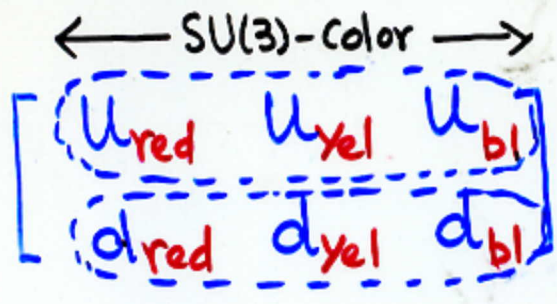 SU(3)-Color
u red u yel u bl
d red d yel d bl